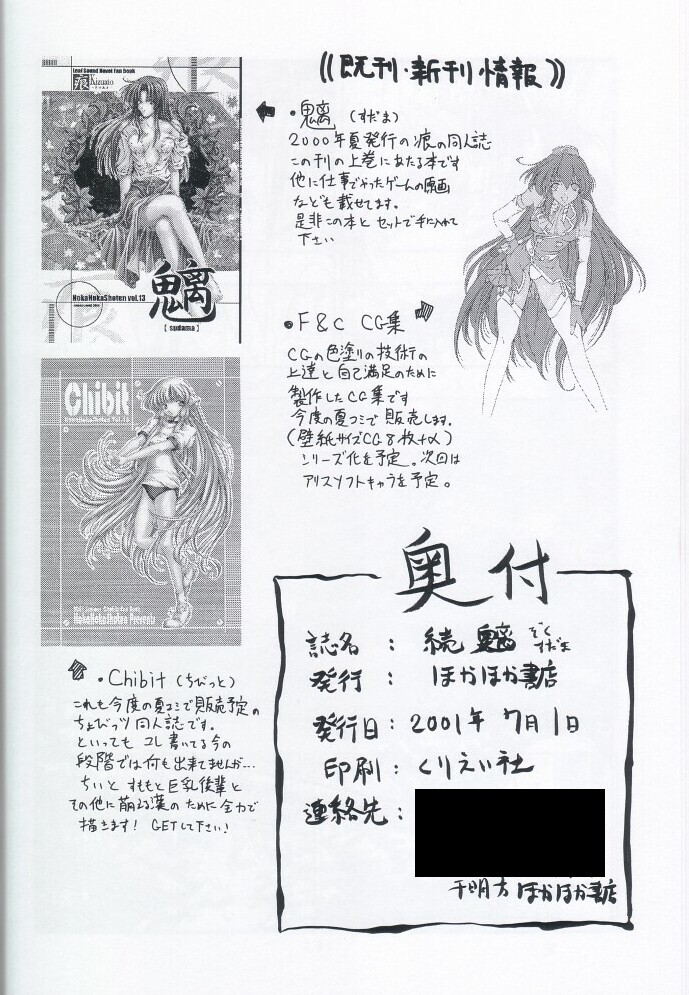 ((既刊・新刊情報))
Leaf Sound Novel Fan book
痕 Kizuato
HokaHokaShoten vol.13
魑
【sudama】
・魑 (すだま)
2000年夏発行の痕の同人誌
この刊の上巻にあたる本です
他に仕事でやったゲームの原画
なども載せてます。
是非この本とセットで手に入れて
下さい
・F&C CG集
CGの色塗りの技術の
上達と自己満足のために
製作したCG集です
今度の夏コミで販売します。
(壁紙サイズCG8枚+α)
シリーズ化を予定。次回は
アリスソフトキャラを予定。
Chibit
HokaHokaShoten Presents
・Chibit (ちびっと)
これも今度の夏コミで販売予定の
ちょびっツ同人誌です。
といっても コレ書いてる今の
段階では何も出来てませんが…
ちぃと すももと巨乳後輩と
その他に萌える漢のために全力で
描きます! GETして下さい!
奥付
誌名:続魑 ぞくすだま
発行:ほかほか書店
発行日:2001年7月1日
印刷:くりえい社
連絡先:
千明方 ほかほか書店